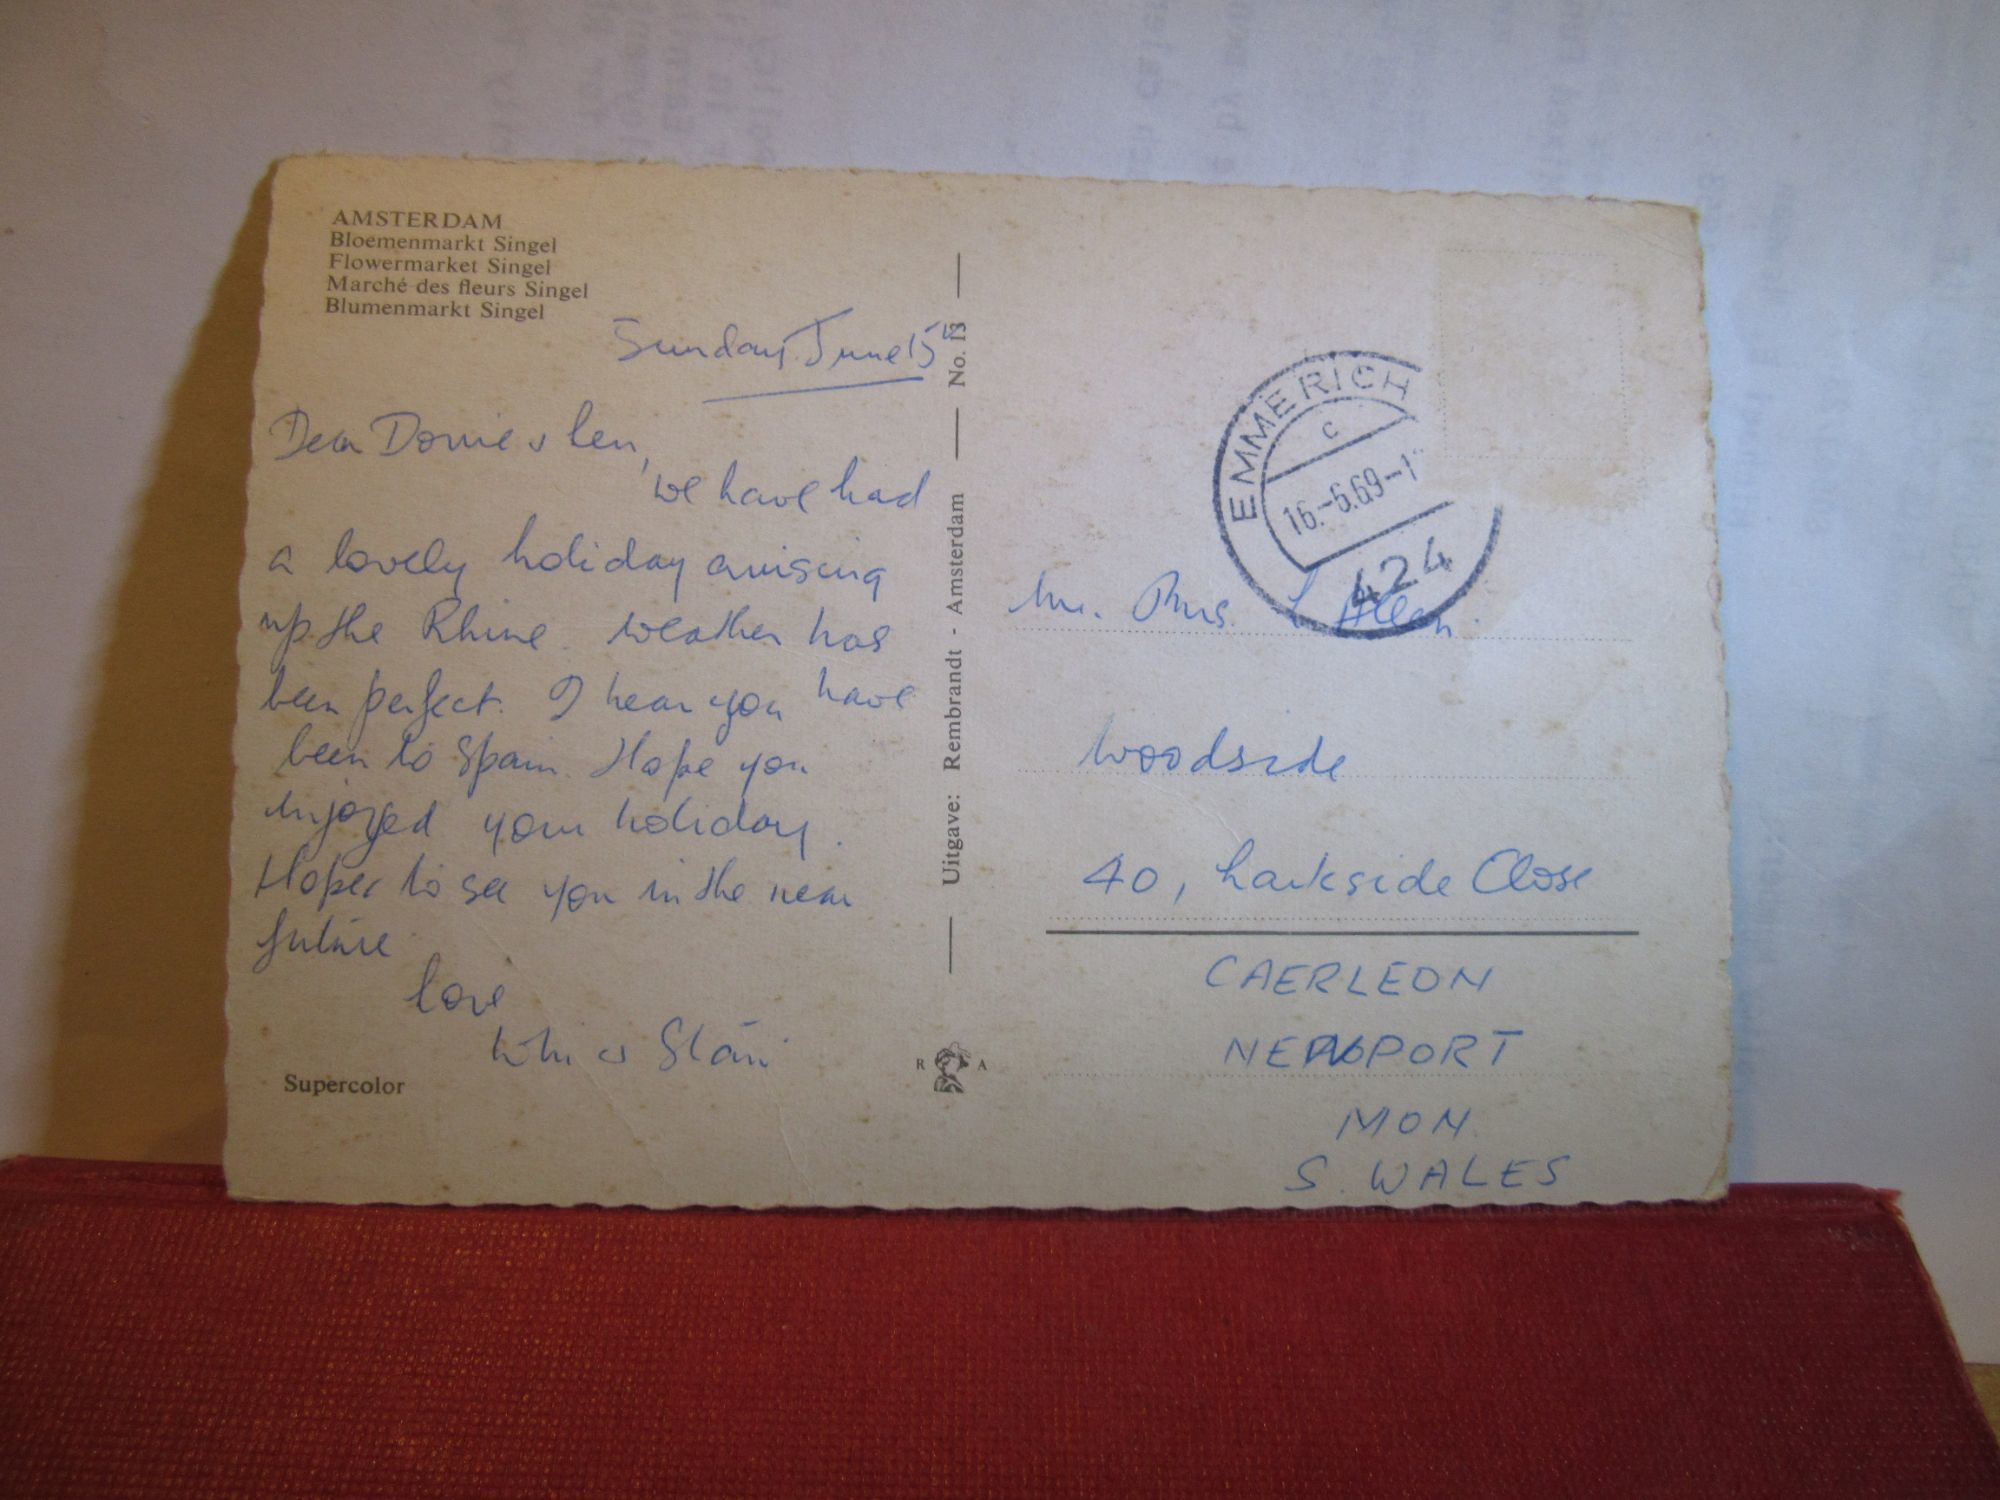 AMSTERDAM
Bloemenmarkt Singel
Flowermarket Singel
Marché des fleurs Singel
Blumenmarkt Singel
Sunday June 15th
Dear Dorrie & Len,
we have had
a lovely holiday cruising
up the Rhine. Weather has
been perfect. I hear you have
been to Spain. Hope you
enjoyed your holiday.
Hope to see you in the near
future.
love
Supercolor
No. 13
Uitgave: Rembrandt - Amsterdam
R A
EMMERICH
c
16.-6.69-1
424
Mr. Mrs. L Allen.
Woodside
40, Larkside Close
CAERLEON
NEWPORT
MON.
S. WALES